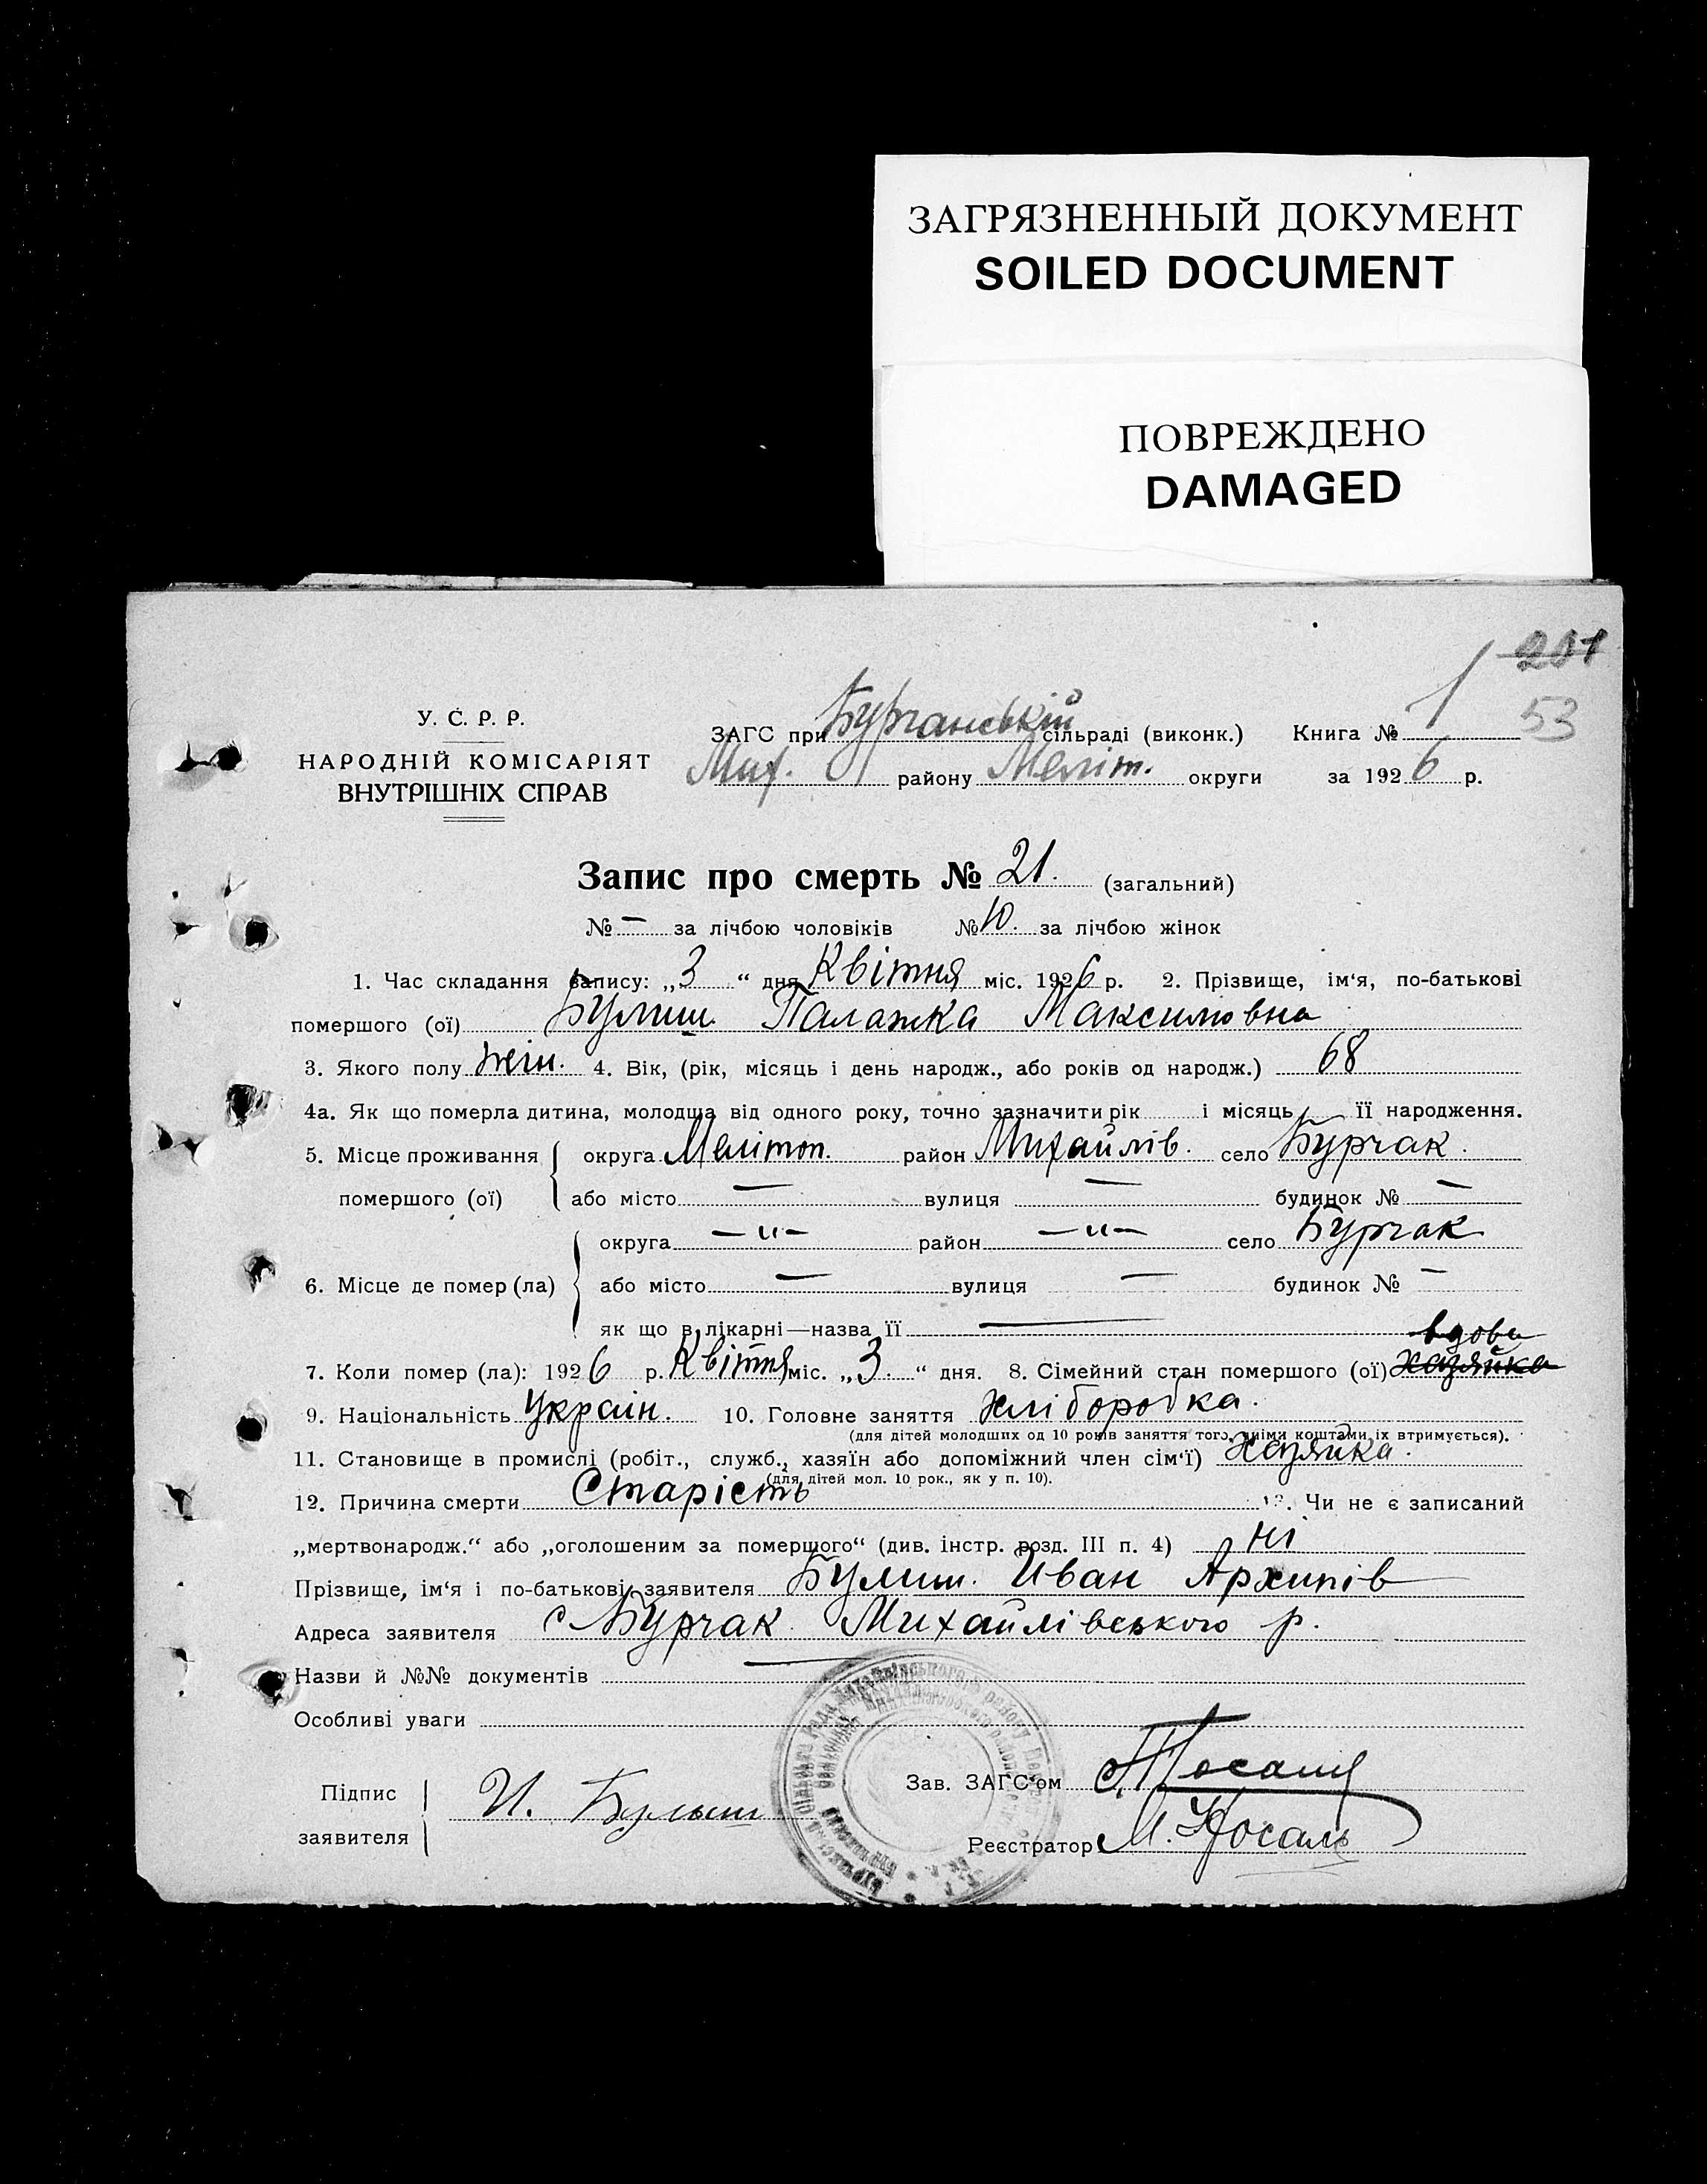 ЗАГРЯЗНЕННЫЙ ДОКУМЕНТ
SOILED DOCUMENT
ПОВРЕЖДЕНО
DAMAGED
201
53
У. С. Р. Р.
НАРОДНІЙ КОМІСАРІЯТ
ВНУТРІШНІХ СПРАВ
ЗАГС при Бурчанській сільраді (виконк.) Книга № 1
Мих. району Меліт. округи за 1926 р.
Запис про смерть № 21. (загальний)
№ — за лічбою чоловіків № 10. за лічбою жінок
1. Час складання запису: „3“ дня Квітня міс. 1926 р. 2. Прізвище, ім‘я, по-батькові
помершого (ої) Булиш Палажка Максимовна
3. Якого полу жін. 4. Вік, (рік, місяць і день народж., або років од народж.) 68
4а. Як що померла дитина, молодша від одного року, точно зазначити рік і місяць її народження.
5. Місце проживання помершого (ої) округа Мелітоп. район Михайлів. село Бурчак.
або місто — вулиця — будинок № —
6. Місце де помер (ла) округа —„— район —„— село Бурчак
або місто — вулиця — будинок № —
як що в лікарні—назва її —
вдова
7. Коли помер (ла): 1926 р. Квітня міс. „3.“ дня. 8. Сімейний стан помершого (ої) хазяйка
9. Національність Україн. 10. Головне заняття хліборобка.
(для дітей молодших од 10 років заняття того, чиїми коштами їх втримується).
11. Становище в промислі (робіт., служб., хазяїн або допоміжний член сім‘ї) Хазяйка.
(для дітей мол. 10 рок., як у п. 10).
12. Причина смерти Старість 13. Чи не є записаний
„мертвонародж.“ або „оголошеним за померщого“ (див. інстр. розд. III п. 4) ні
Прізвище, ім‘я і по-батькові заявителя Булиш. Иван Архипів
Адреса заявителя с Бурчак Михайлівського р.
Назви й №№ документів —
Особливі уваги
Підпис заявителя И. Булыш
Зав. ЗАГС‘ом
Реєстратор М. Носаль